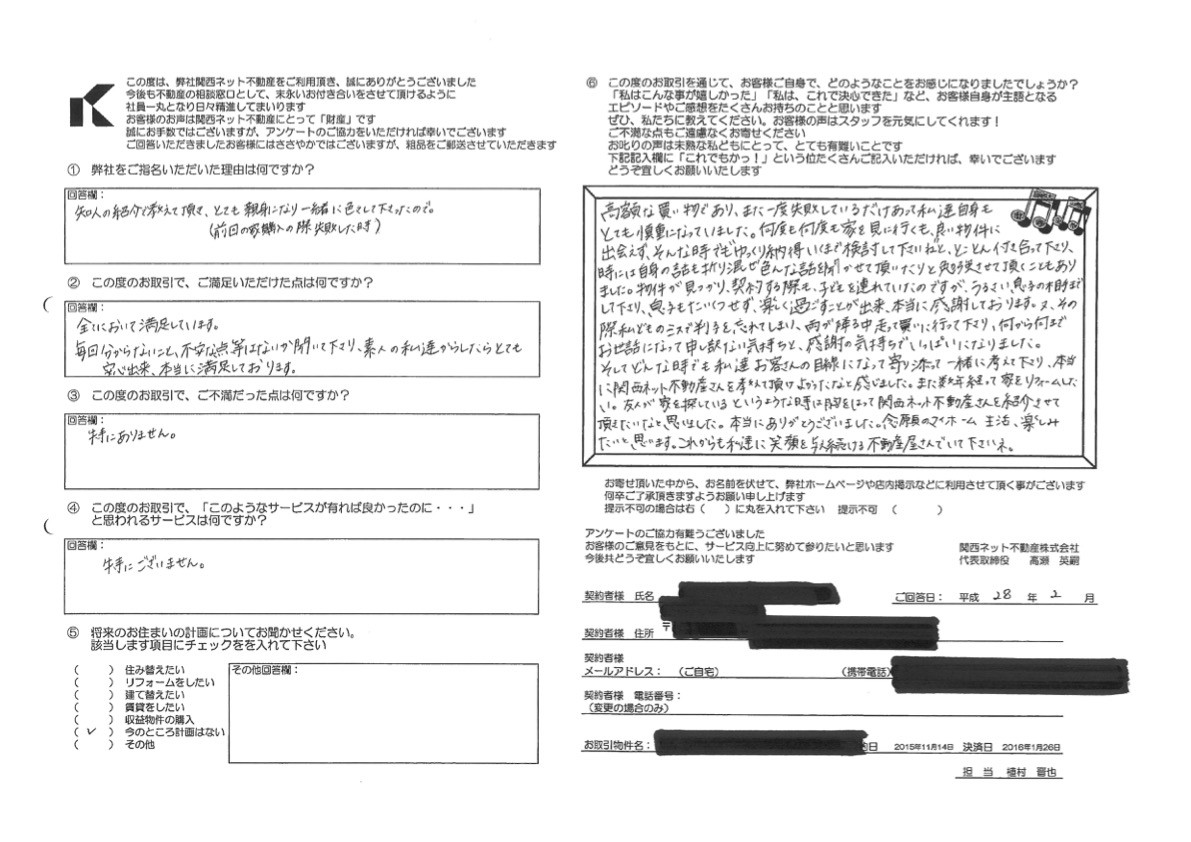 この度は、弊社関西ネット不動産をご利用頂き、誠にありがとうございました
今後も不動産の相談窓口として、末永いお付き合いをさせて頂けるように
社員一丸となり日々精進してまいります
お客様のお声は関西ネット不動産にとって「財産」です
誠にお手数ではございますが、アンケートのご協力をいただければ幸いでございます
ご回答いただきましたお客様にはささやかではございますが、粗品をご郵送させていただきます
① 弊社をご指名いただいた理由は何ですか？
回答欄：
知人の紹介で教えて頂き、とても親身になり一緒に色々して下さったので。
(前回の家購入の際失敗した時)
② この度のお取引で、ご満足いただけた点は何ですか？
回答欄：
全てにおいて満足しています。
毎回分からないこと、不安な点等はないか聞いて下さり、素人の私達からしたらとても
安心出来、本当に満足しております。
③ この度のお取引で、ご不満だった点は何ですか？
回答欄：
特にありません。
④ この度のお取引で、「このようなサービスが有れば良かったのに・・・」
と思われるサービスは何ですか？
回答欄：
特にございません。
⑤ 将来のお住まいの計画についてお聞かせください。
該当します項目にチェックをを入れて下さい
( ) 住み替えたい
( ) リフォームをしたい
( ) 建て替えたい
( ) 賃貸をしたい
( ) 収益物件の購入
( ✓ ) 今のところ計画はない
( ) その他
その他回答欄：
⑥ この度のお取引を通じて、お客様ご自身で、どのようなことをお感じになりましたでしょうか？
「私はこんな事が嬉しかった」「私は、これで決心できた」など、お客様自身が主語となる
エピソードやご感想をたくさんお持ちのことと思います
ぜひ、私たちに教えてください。お客様の声はスタッフを元気にしてくれます！
ご不満な点もご遠慮なくお寄せください
お叱りの声は未熟な私どもにとって、とても有難いことです
下記記入欄に「これでもかっ！」という位たくさんご記入いただければ、幸いでございます
どうぞ宜しくお願いいたします
高額な買い物であり、また一度失敗しているだけあって私達自身も
とても慎重になっていました。何度も何度も家を見に行くも、良い物件に
出会えず、そんな時でも"ゆっくり納得いくまで検討して下さいね"と、とことん付き合って下さり、
時には自身の話も折り混ぜ色んな話を聞かせて頂いたりと勉強させて頂くこともあり
ました。物件が見つかり、契約する際も、子どもを連れていたのですが、うるさい息子の相手まで
して下さり、息子もたいくつせず、楽しく過ごすことが出来、本当に感謝しております。又、その
際私どものミスで判子を忘れてしまい、雨が降る中走って買いに行って下さり、何から何まで
お世話になって申し訳ない気持ちと、感謝の気持ちでいっぱいになりました。
そしてどんな時でも私達お客さんの目線になって寄り添って一緒に考えて下さり、本当
に関西ネット不動産さんを教えて頂けよかったなと感じました。また数年経って家をリフォームした
い。友人が家を探しているというような時は胸をはって関西ネット不動産さんを紹介させて
頂きたいなと思いました。本当にありがとうございました。念願のマイホーム生活、楽しみ
たいと思います。これからも私達に笑顔を与え続ける不動産屋さんでいて下さいネ。
お寄せ頂いた中から、お名前を伏せて、弊社ホームページや店内掲示などに利用させて頂く事がございます
何卒ご了承頂きますようお願い申し上げます
提示不可の場合は右（ ）に丸を入れて下さい 提示不可 （ ）
アンケートのご協力有難うございました
お客様のご意見をもとに、サービス向上に努めて参りたいと思います
今後共どうぞ宜しくお願いいたします
関西ネット不動産株式会社
代表取締役 高瀬 英嗣
契約者様 氏名
ご回答日： 平成 28 年 2 月
〒
契約者様 住所
契約者様
メールアドレス： （ご自宅） （携帯電話）
契約者様 電話番号：
（変更の場合のみ）
お取引物件名： 日 2015年11月14日 決済日 2016年1月26日
担 当 植村 晋也